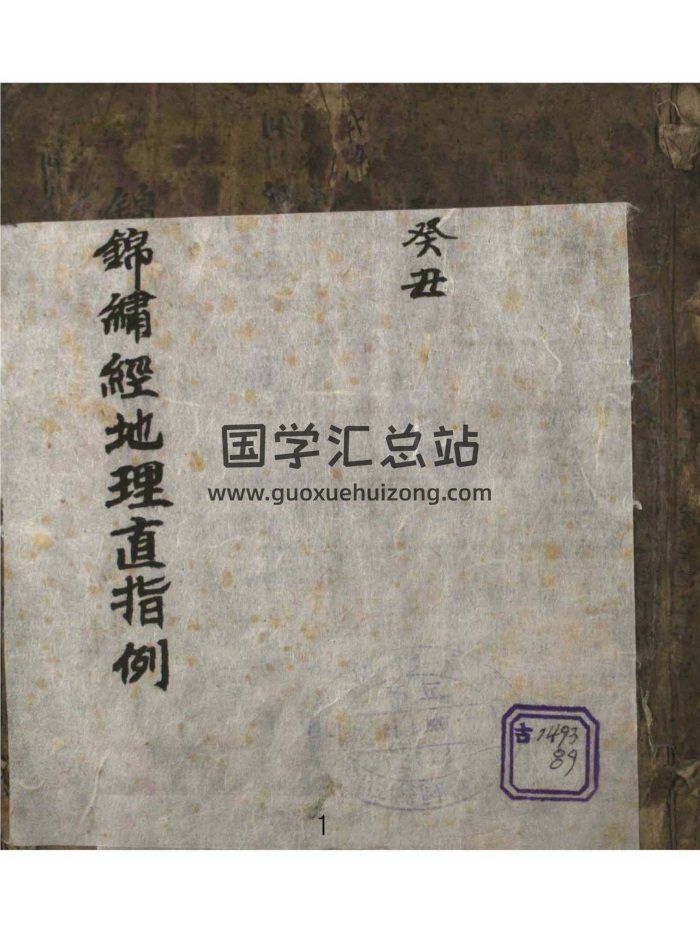 癸丑
錦繡經地理直指例
国学汇总站
www.guoxuehuizong.com
吉1493
89
1